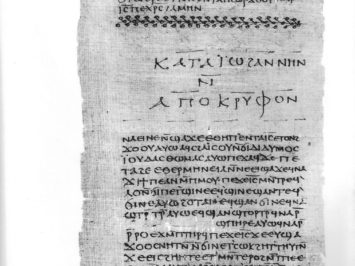 ⲓ̅ⲥ̅ ⲡⲉⲭ̅ⲥ̅ ϩⲁⲙⲏⲛ
ⲕⲁⲧⲁ ⲓ̈ⲱϩⲁⲛⲛⲏⲛ
ⲛ
ⲁⲡⲟⲕⲣⲩⲫⲟⲛ
ⲛⲁⲉⲓ ⲛⲉ ⲛ̅ϣⲁϫⲉ ⲉⲑⲏⲡ ⲉⲛⲧⲁ ⲓ̅ⲥ̅ ⲉⲧⲟⲛϩ
ϫⲟⲟⲩ ⲁⲩⲱ ⲁϥⲥϩⲁⲓ̈ⲥⲟⲩ ⲛ̅ϭⲓ ⲇⲓⲇⲩⲙⲟⲥ
ⲓ̈ⲟⲩⲇⲁⲥ ⲑⲱⲙⲁⲥ ⲁⲩⲱ ⲡⲉϫⲁϥ ϫⲉ ⲡⲉ
ⲧⲁϩⲉ ⲉⲑⲉⲣⲙⲏⲛⲉⲓⲁ ⲛ̅ⲛⲉⲉⲓϣⲁϫⲉ ϥⲛⲁ
ϫⲓ ϯⲡⲉ ⲁⲛ ⲙ̅ⲡⲙⲟⲩ ⲡⲉϫⲉ ⲓ̅ⲥ̅ ⲙⲛ̅ⲧⲣⲉϥ
ⲗⲟ ⲛ̅ϭⲓ ⲡⲉⲧϣⲓⲛⲉ ⲉϥϣⲓⲛⲉ ϣⲁⲛⲧⲉϥ
ϭⲓⲛⲉ ⲁⲩⲱ ϩⲟⲧⲁⲛ ⲉϥϣⲁⲛϭⲓⲛⲉ ϥⲛⲁ
ϣⲧⲣ̅ⲧⲣ̅ ⲁⲩⲱ ⲉϥϣⲁⲛϣⲧⲟⲣⲧⲣ̅ ϥⲛⲁⲣ̅
ϣⲡⲏⲣⲉ ⲁⲩⲱ ϥⲛⲁ
ⲣ̅ ⲣⲣⲟ ⲉϫⲙ̅ ⲡⲧⲏⲣϥ ⲡⲉϫⲉ ⲓ̅ⲥ̅ ϫⲉ ⲉⲩϣⲁ
ϫⲟⲟⲥ ⲛⲏⲧⲛ̅ ⲛ̅ϭⲓ ⲛⲉⲧⲥⲱⲕ ϩⲏⲧ ⲑⲏⲩⲧⲛ̅
ϫⲉ ⲉⲓⲥϩⲏⲏⲧⲉ ⲉⲧⲙⲛ̅ⲧⲉⲣⲟ ϩⲛ̅ ⲧⲡⲉ